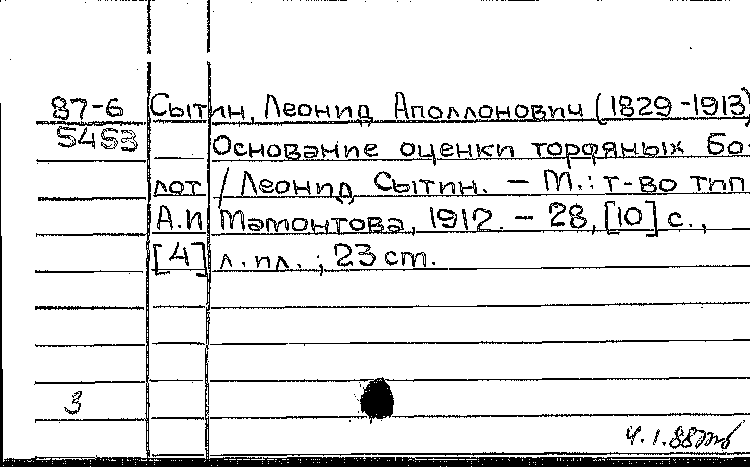 87-6 Сытин, Леонид Аполлонович (1829-1913)
5453 Основание оценки торфяных бо-
лот / Леонид Сытин. - М.: т-во тип.
А.И Мамонтова, 1912. - 28, [10] с.,
[4] л. пл. ; 23 cm.
3
4.1.88